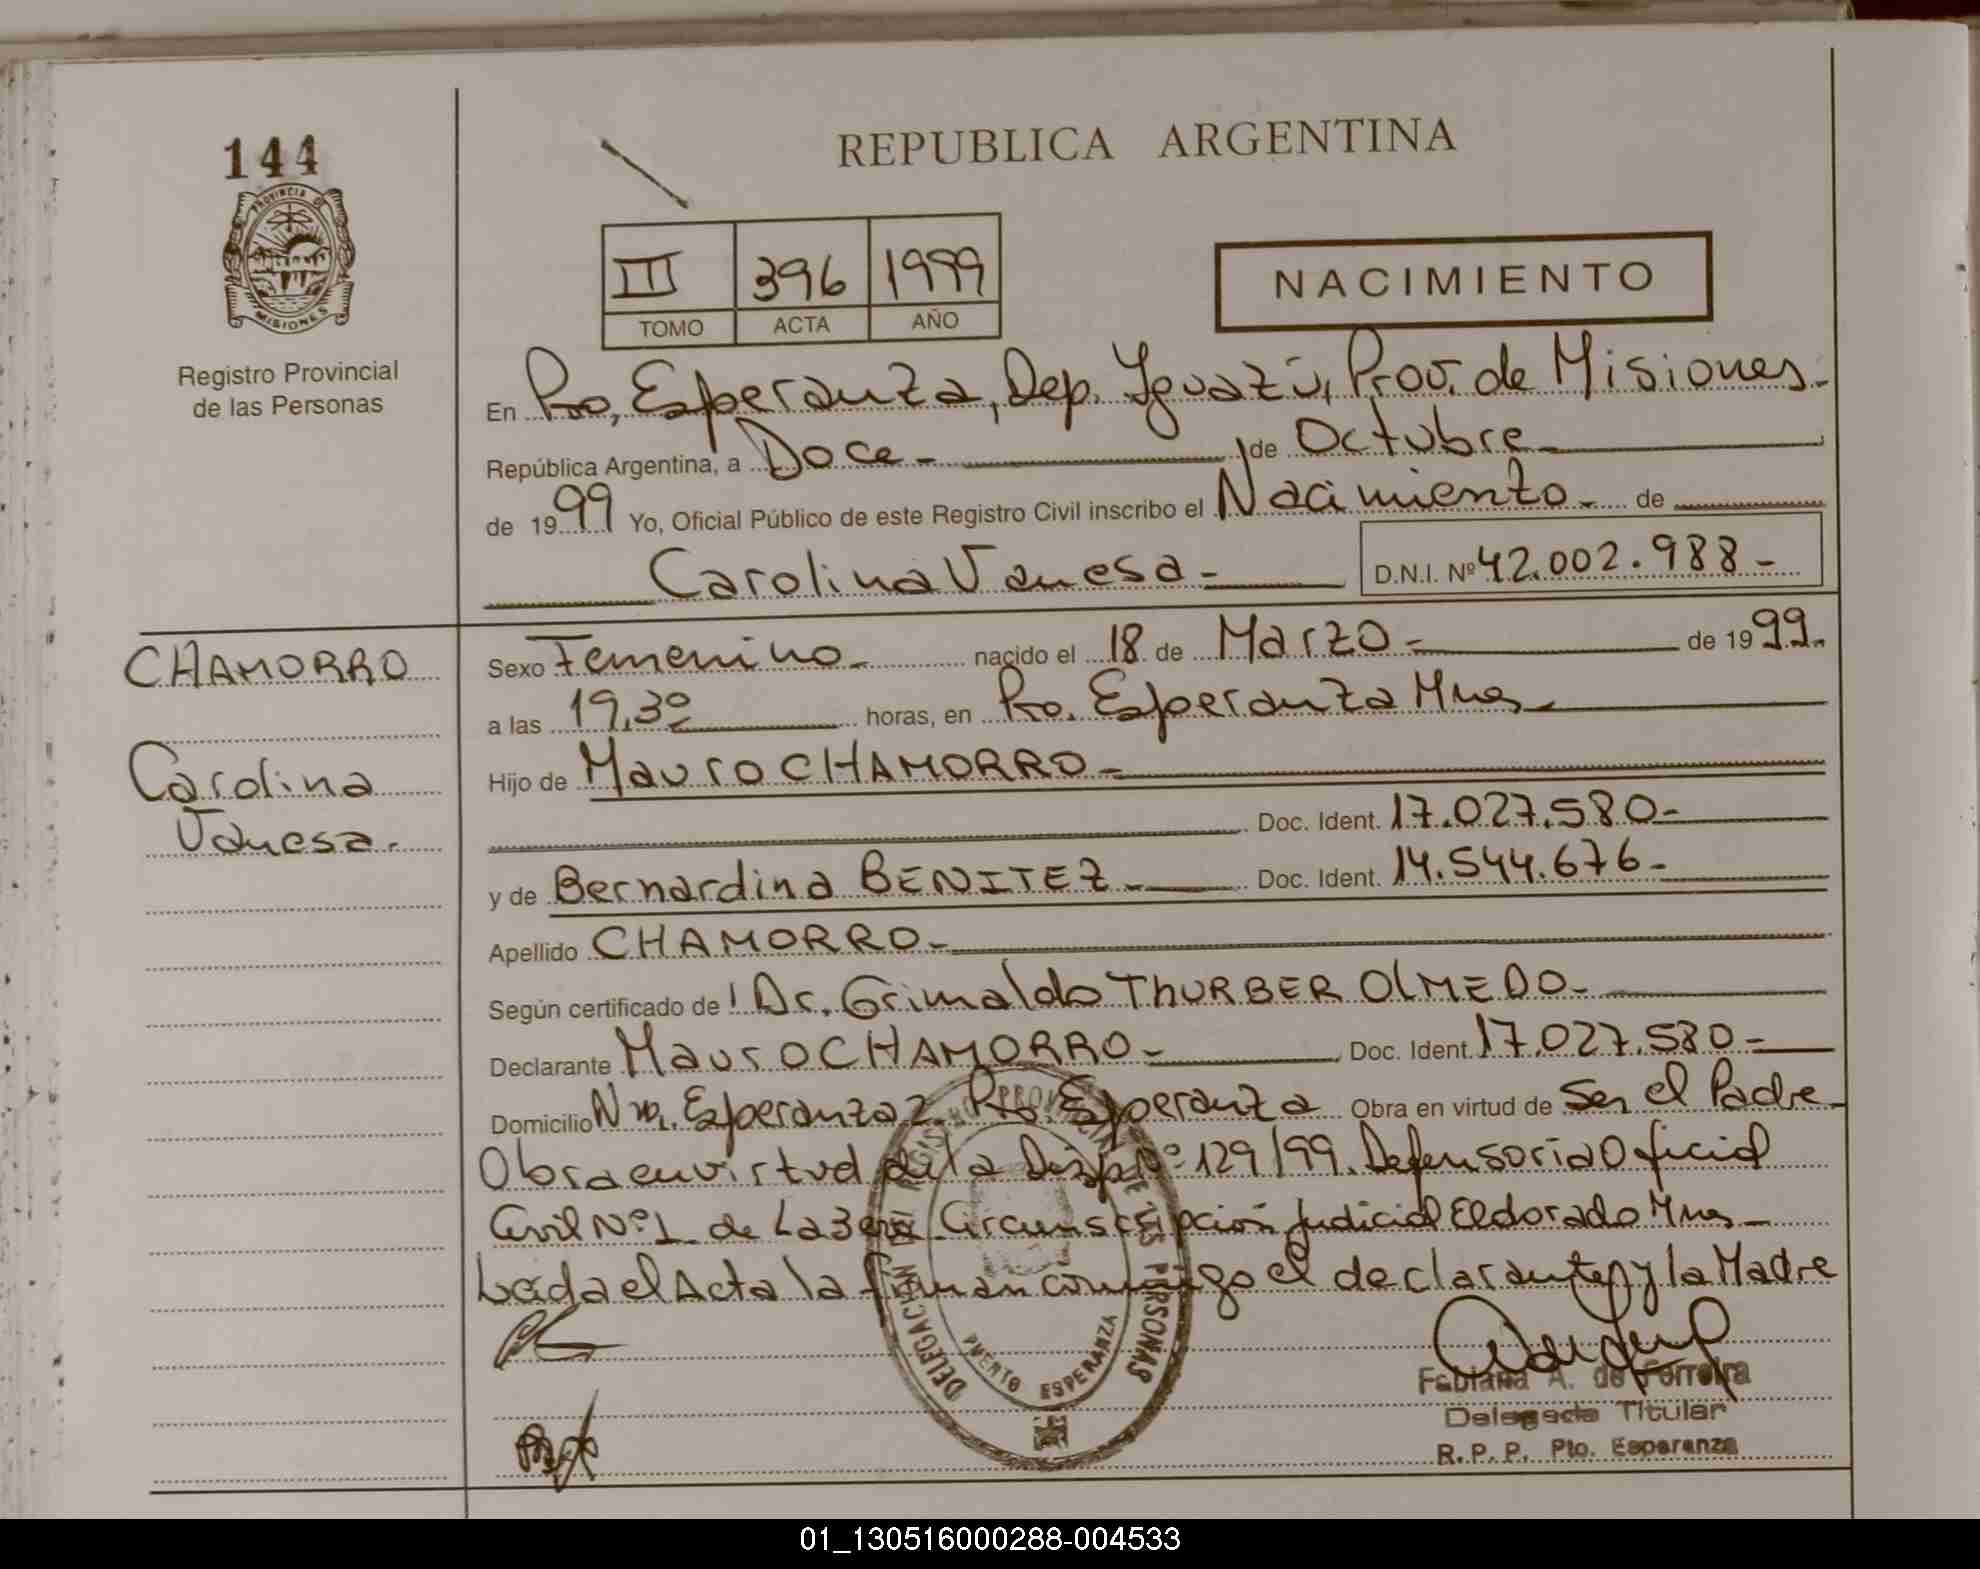 144
PROVINCIA DE
MISIONES
Registro Provincial
de las Personas
REPUBLICA ARGENTINA
III 396 1999
TOMO ACTA AÑO
NACIMIENTO
En Pto, Esperanza, Dep. Iguazú, Prov. de Misiones.
República Argentina, a Doce - de Octubre -
de 1999 Yo, Oficial Público de este Registro Civil inscribo el Nacimiento - de
Carolina Vanesa - D.N.I. Nº 42.002.988-
CHAMORRO
Carolina
Vanesa.
Sexo Femenino - nacido el 18 de Marzo - de 1999.
a las 19,30 horas, en Pto. Esperanza Mnes -
Hijo de Mauro CHAMORRO -
Doc. Ident. 17.027.580-
y de Bernardina BENITEZ - Doc. Ident. 14.544.676-
Apellido CHAMORRO -
Según certificado de: Dr. Grimaldo THURBER OLMEDO -
Declarante Mauro CHAMORRO - Doc. Ident. 17.027.580-
Domicilio Esperanza 2 Pto. Esperanza Obra en virtud de Ser el Padre
Obra en virtud de la Disp Nº 129/99. Defensoria Oficial
Civil Nº 1 de La 3era Circunscripción Judicial Eldorado Mnes -
Leida el Acta la firman conmigo el declarante y la Madre
DELEGACION REGISTRO PROVINCIAL DE LAS PERSONAS
PUERTO ESPERANZA
Fabiana A. de Ferreira
Delegada Titular
R. P. P. Pto. Esperanza
01_130516000288-004533